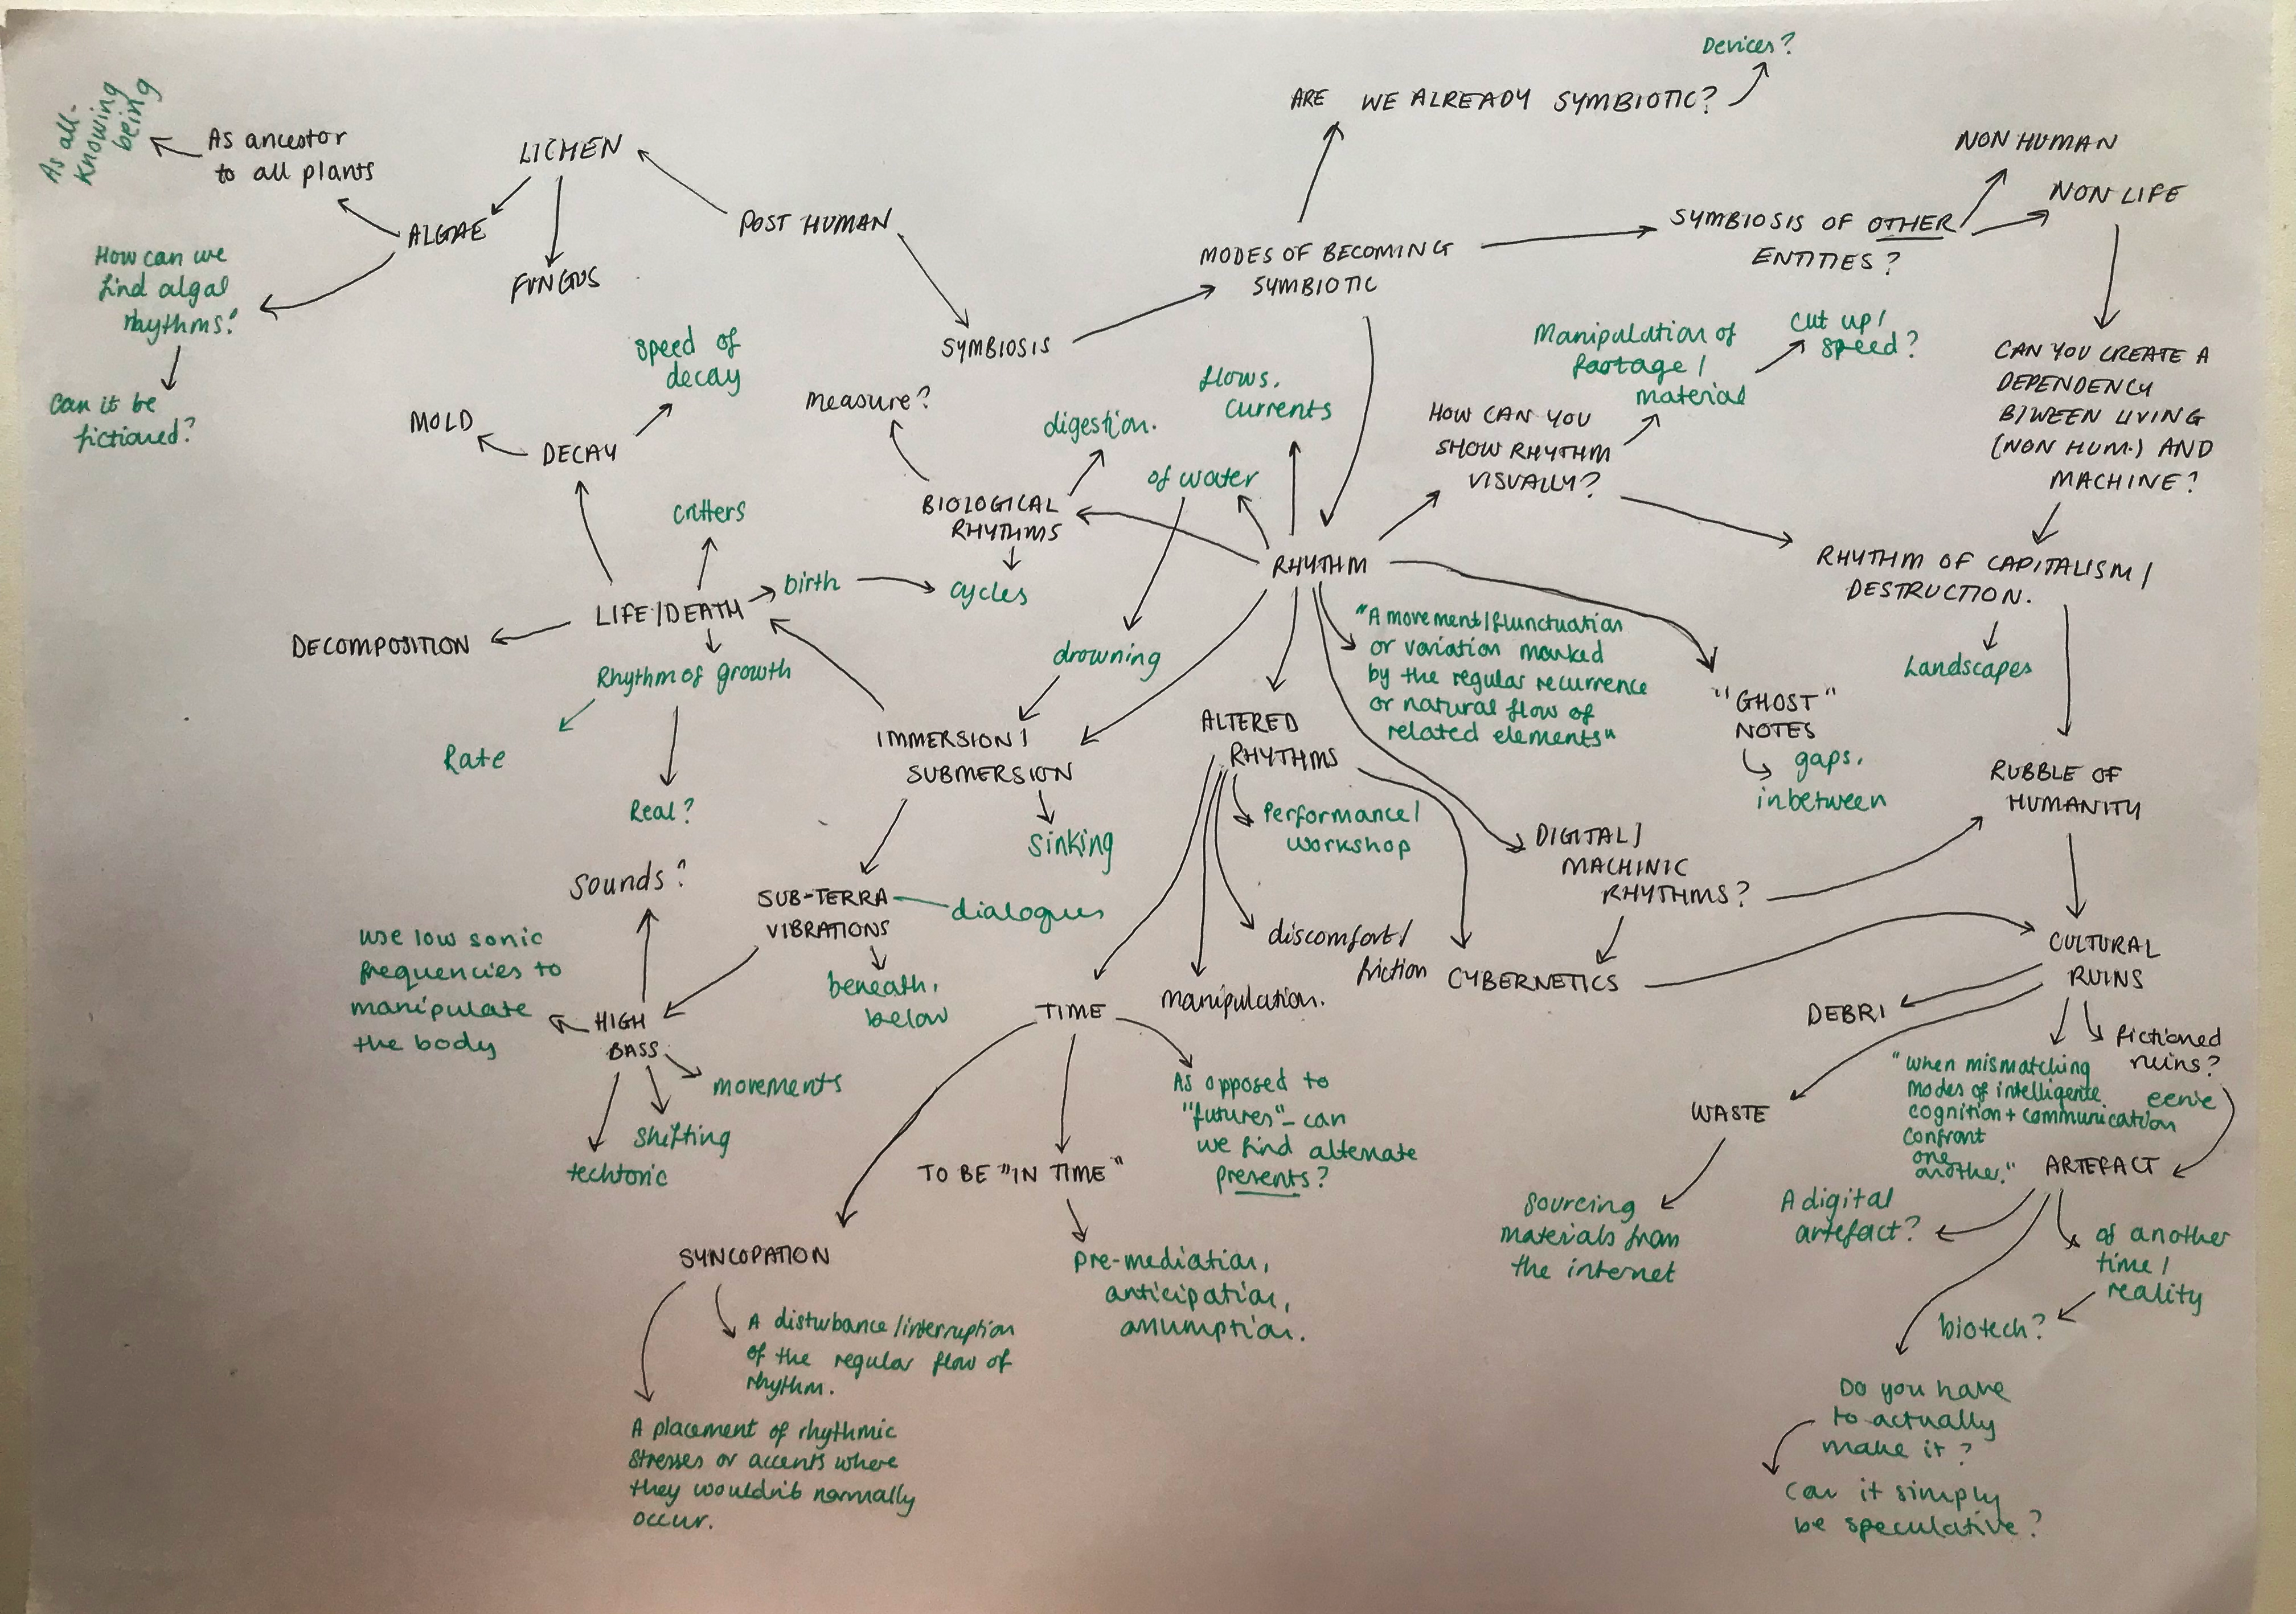 Devices?
ARE WE ALREADY SYMBIOTIC?
As all-
knowing
being
As ancestor
to all plants
LICHEN
ALGAE
FUNGUS
POST HUMAN
SYMBIOSIS
MODES OF BECOMING
SYMBIOTIC
SYMBIOSIS OF OTHER
ENTITIES?
NON HUMAN
NON LIFE
How can we
find algal
rhythms?
Can it be
fictioned?
CAN YOU CREATE A
DEPENDENCY
BTWEEN LIVING
(NON HUM.) AND
MACHINE?
Manipulation of
footage /
material
cut up /
speed?
HOW CAN YOU
SHOW RHYTHM
VISUALLY?
flows.
currents
of water
measure?
digestion.
BIOLOGICAL
RHYTHMS
cycles
speed of
decay
MOLD
DECAY
critters
birth
LIFE/DEATH
DECOMPOSITION
Rhythm of growth
Rate
Real?
RHYTHM
drowning
IMMERSION /
SUBMERSION
sinking
"A movement/flunctuation
or variation marked
by the regular recurrence
or natural flow of
related elements"
"GHOST"
NOTES
gaps,
inbetween
RHYTHM OF CAPITALISM /
DESTRUCTION.
Landscapes
RUBBLE OF
HUMANITY
ALTERED
RHYTHMS
Performance /
workshop
discomfort /
friction
manipulation.
DIGITAL /
MACHINIC
RHYTHMS?
CYBERNETICS
Sounds?
SUB-TERRA
VIBRATIONS
dialogues
beneath,
below
use low sonic
frequencies to
manipulate
the body
HIGH
BASS
movements
shifting
techtonic
TIME
As opposed to
"futures" – can
we find alternate
presents?
TO BE "IN TIME"
pre-mediation,
anticipation,
assumption.
SYNCOPATION
A disturbance/interruption
of the regular flow of
rhythm.
A placement of rhythmic
stresses or accents where
they wouldn't normally
occur.
CULTURAL
RUINS
DEBRI
WASTE
sourcing
materials from
the internet
fictioned
ruins?
eerie
"when mismatching
modes of intelligence
cognition + communication
confront
one
another."
ARTEFACT
A digital
artefact?
of another
time /
reality
biotech?
Do you have
to actually
make it?
Can it simply
be speculative?